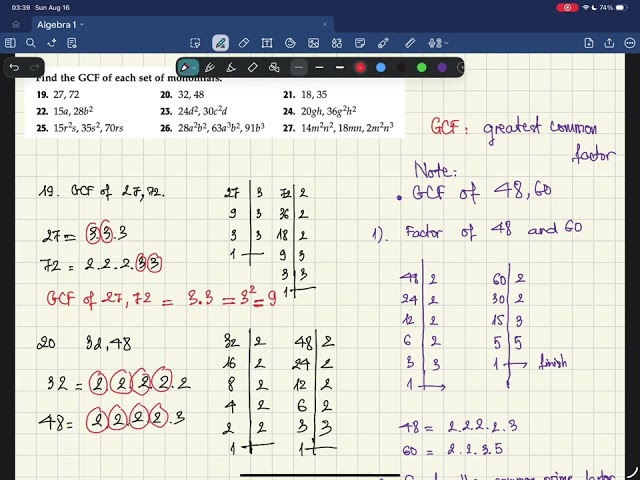 03:39 Sun Aug 16
74%
Algebra 1
Find the GCF of each set of monomials.
19. 27, 72
20. 32, 48
21. 18, 35
22. 15a, 28b²
23. 24d², 30c²d
24. 20gh, 36g²h²
25. 15r²s, 35s², 70rs
26. 28a²b², 63a³b², 91b³
27. 14m²n², 18mn, 2m²n³
GCF: greatest common
factor
Note:
• GCF of 48, 60
1). Factor of 48 and 60
48 2
24 2
12 2
6 2
3 3
1
60 2
30 2
15 3
5 5
1 finish
48 = 2.2.2.2.3
60 = 2.2.3.5
19. GCF of 27, 72.
27 = 3.3.3
72 = 2.2.2.3.3
27 3
9 3
3 3
1
72 2
36 2
18 2
9 3
3 3
1
GCF of 27, 72 = 3.3 = 3² = 9
20 32, 48
32 = 2.2.2.2.2
48 = 2.2.2.2.3
32 2
16 2
8 2
4 2
2 2
1
48 2
24 2
12 2
6 2
3 3
1